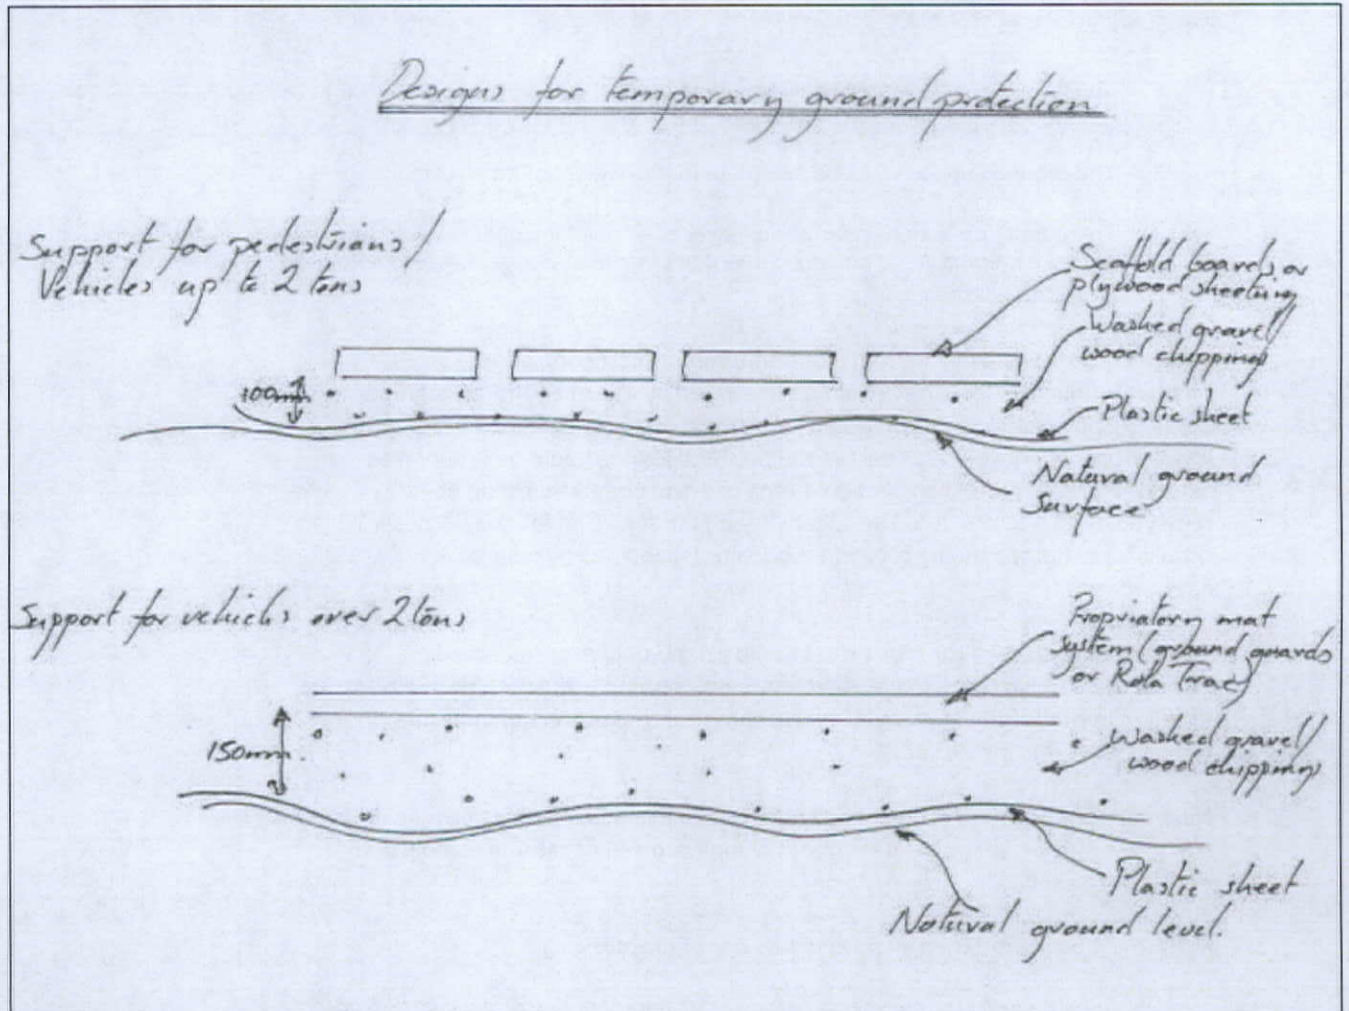 Designs for temporary ground protection
Support for pedestrians/
Vehicles up to 2 tons
Scaffold boards or
plywood sheeting
Washed gravel/
wood chippings
100mm
Plastic sheet
Natural ground
Surface
Support for vehicles over 2 tons
Propriatory mat
system (ground guards
or Rola Trac)
150mm
washed gravel/
wood chippings
Plastic sheet
Natural ground level.